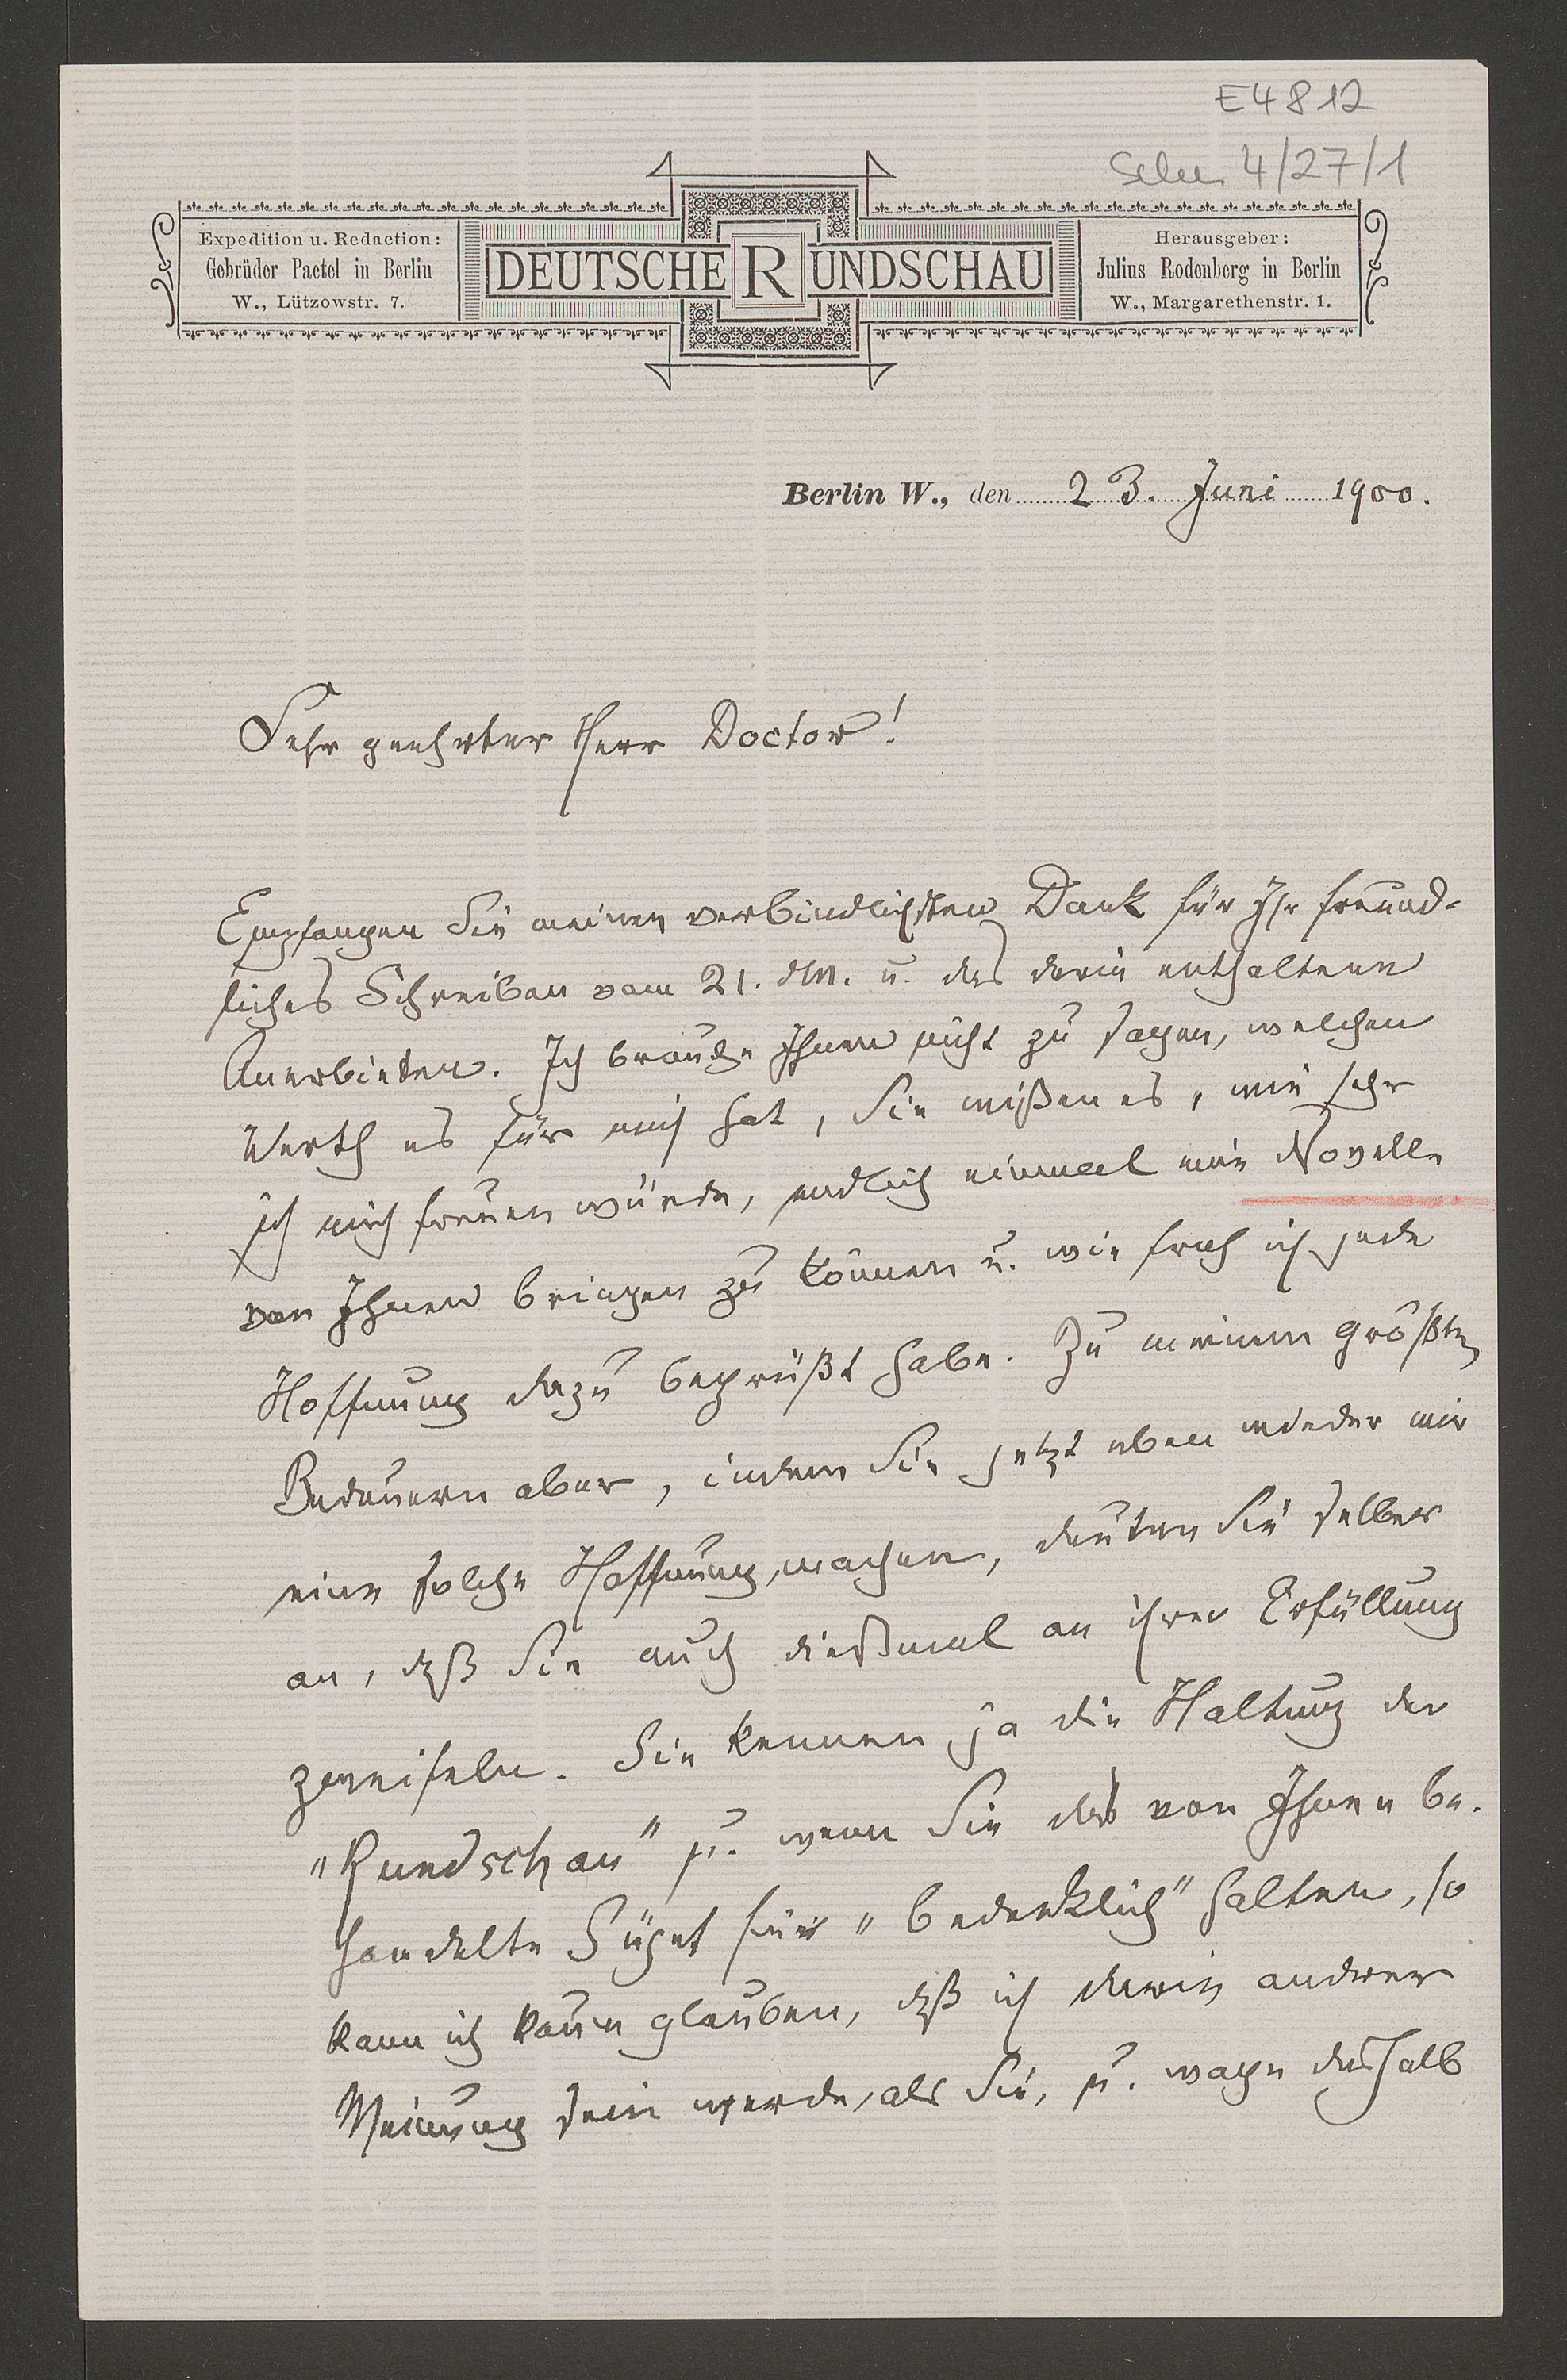 E4812
4/27/1
Expedition u. Redaction:
Gebrüder Paetel in Berlin
W., Lützowstr. 7.
DEUTSCHE RUNDSCHAU
Herausgeber:
Julius Rodenberg in Berlin
W., Margarethenstr. 1.
Berlin W., den 23. Juni 1900.
Sehr geehrter Herr Doctor!
Empfangen Sie meinen verbindlichsten Dank für Ihr freund-
liches Schreiben vom 21. dM. u. das darin enthaltene
Anerbieten. Ich brauche Ihnen nicht zu sagen, welchen
Werth es für mich hat, Sie wißen es, wie sehr
ich mich freuen würde, endlich einmal eine Novelle
von Ihnen bringen zu können u. wie froh ich jede
Hoffnung dazu begrüßt habe. Zu meinem größten
Bedauern aber, indem Sie jetzt eben wieder mir
eine solche Hoffnung machen, deuten Sie selber
an, daß Sie auch dießmal an ihrer Erfüllung
zweifeln. Sie kennen ja die Haltung der
„Rundschau" u. wenn Sie das von Ihnen be-
handelte Süjet für „bedenklich" halten, so
kann ich kaum glauben, daß ich darin andrer
Meinung sein werde, als Sie, u. wage deshalb